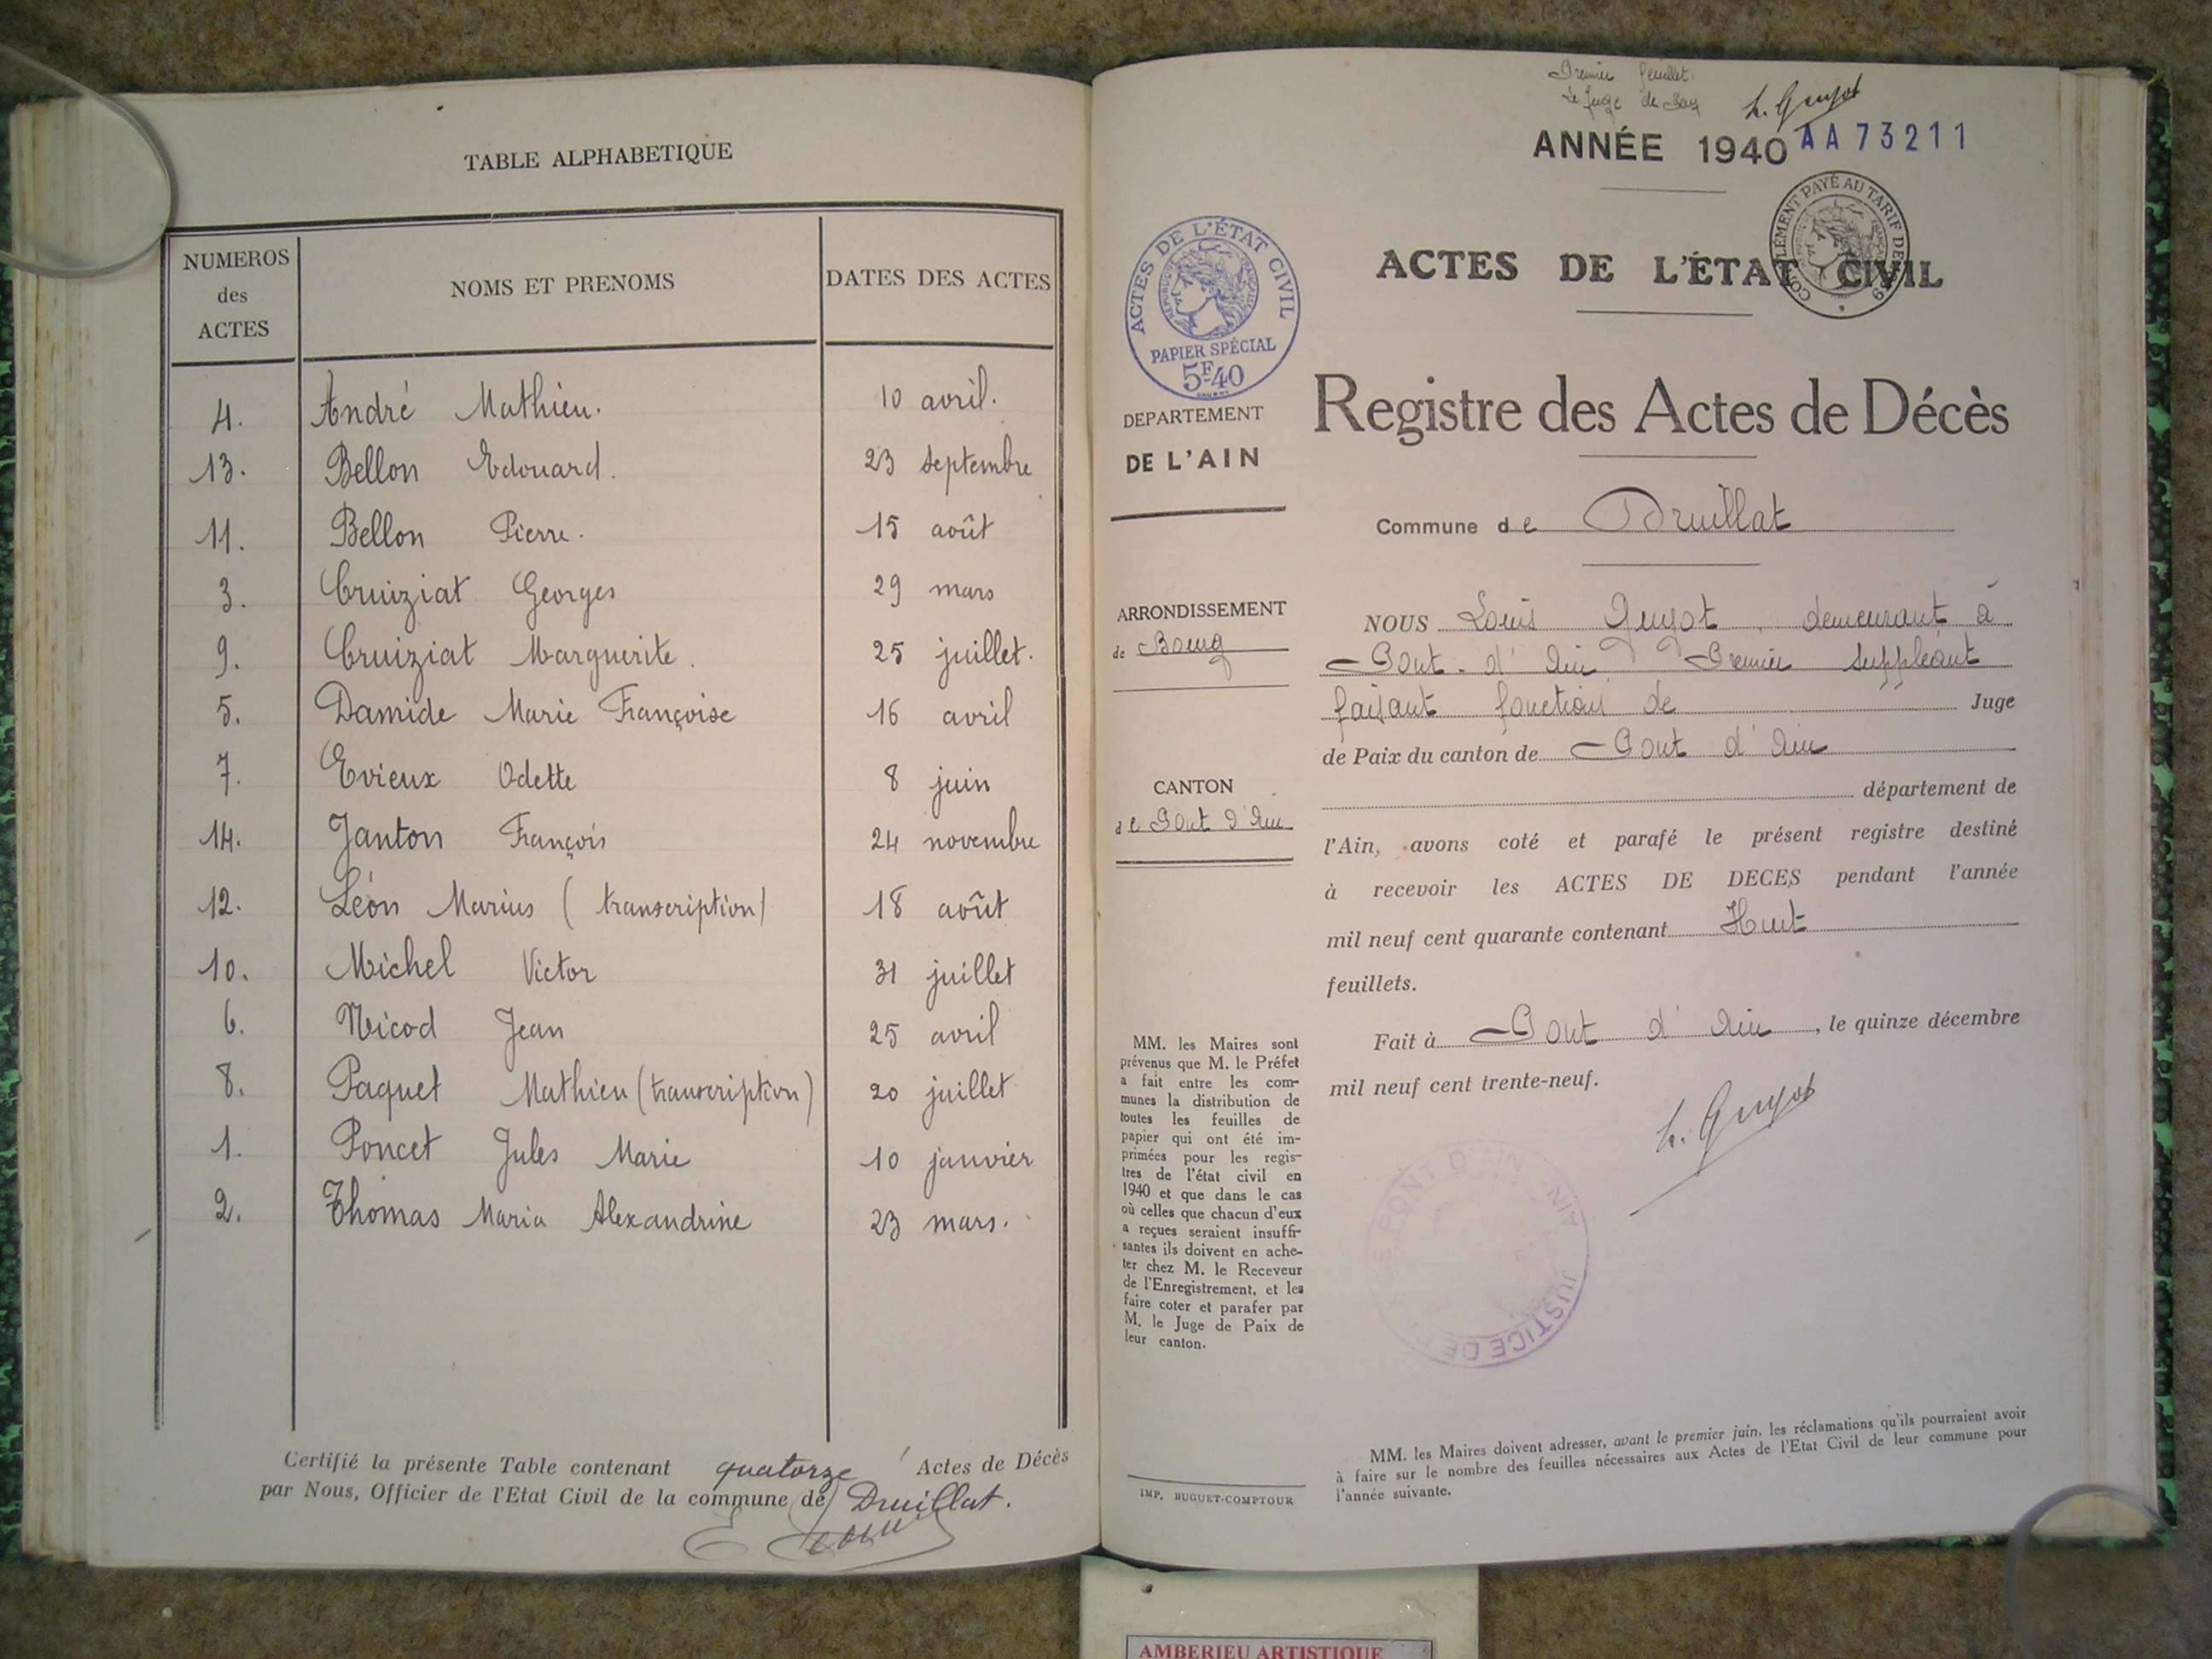 TABLE ALPHABETIQUE
NUMEROS des ACTES NOMS ET PRENOMS DATES DES ACTES
4. André Mathieu. 10 avril.
13. Bellon Edouard. 23 septembre
11. Bellon Pierre. 15 août
3. Cruiziat Georges 29 mars
9. Cruiziat Marguerite. 25 juillet.
5. Damide Marie Françoise 16 avril
7. Evieux Odette 8 juin
14. Janton François 24 novembre
12. Léon Marius (transcription) 18 août
10. Michel Victor 31 juillet
6. Nicod Jean 25 avril
8. Paquet Mathieu (transcription) 20 juillet
1. Poncet Jules Marie 10 janvier
2. Thomas Maria Alexandrine 23 mars.
Certifié la présente Table contenant quatorze Actes de Décès
par Nous, Officier de l'Etat Civil de la commune de Druillat.
Premier feuillet.
Le Juge de Paix L. Guyot
ANNÉE 1940 AA 73211
COMPLÉMENT PAYÉ AU TARIF DE
ACTES DE L'ÉTAT CIVIL
ACTES DE L'ÉTAT CIVIL
RÉPUBLIQUE FRANÇAISE
PAPIER SPÉCIAL
5F40
DEPARTEMENT
DE L'AIN
Registre des Actes de Décès
Commune de Druillat
ARRONDISSEMENT
de Bourg
CANTON
de Pont d'Ain
NOUS Louis Guyot, demeurant à
Pont-d'Ain Premier suppléant
faisant fonction de Juge
de Paix du canton de Pont d'Ain
département de
l'Ain, avons coté et parafé le présent registre destiné
à recevoir les ACTES DE DECES pendant l'année
mil neuf cent quarante contenant Huit
feuillets.
Fait à Pont d'Ain, le quinze décembre
mil neuf cent trente-neuf.
L. Guyot
PONT D'AIN AIN JUSTICE DE
MM. les Maires sont
prévenus que M. le Préfet
a fait entre les com-
munes la distribution de
toutes les feuilles de
papier qui ont été im-
primées pour les regis-
tres de l'état civil en
1940 et que dans le cas
où celles que chacun d'eux
a reçues seraient insuffi-
santes ils doivent en ache-
ter chez M. le Receveur
de l'Enregistrement, et les
faire coter et parafer par
M. le Juge de Paix de
leur canton.
IMP. BUGUET-COMPTOUR
MM. les Maires doivent adresser, avant le premier juin, les réclamations qu'ils pourraient avoir
à faire sur le nombre des feuilles nécessaires aux Actes de l'Etat Civil de leur commune pour
l'année suivante.
AMBERIEU ARTISTIQUE